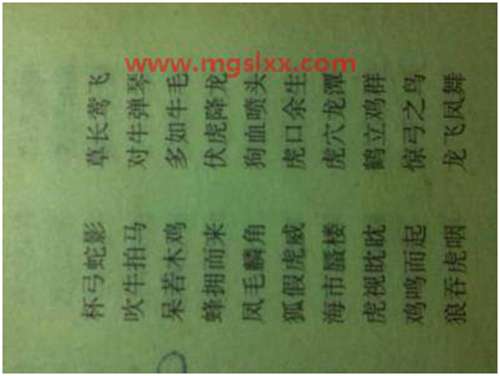 www.mgslxx.com
杯弓蛇影 草长莺飞
吹牛拍马 对牛弹琴
呆若木鸡 多如牛毛
蜂拥而来 伏虎降龙
凤毛麟角 狗血喷头
狐假虎威 虎口余生
海市蜃楼 虎穴龙潭
虎视眈眈 鹤立鸡群
鸡鸣而起 惊弓之鸟
狼吞虎咽 龙飞凤舞